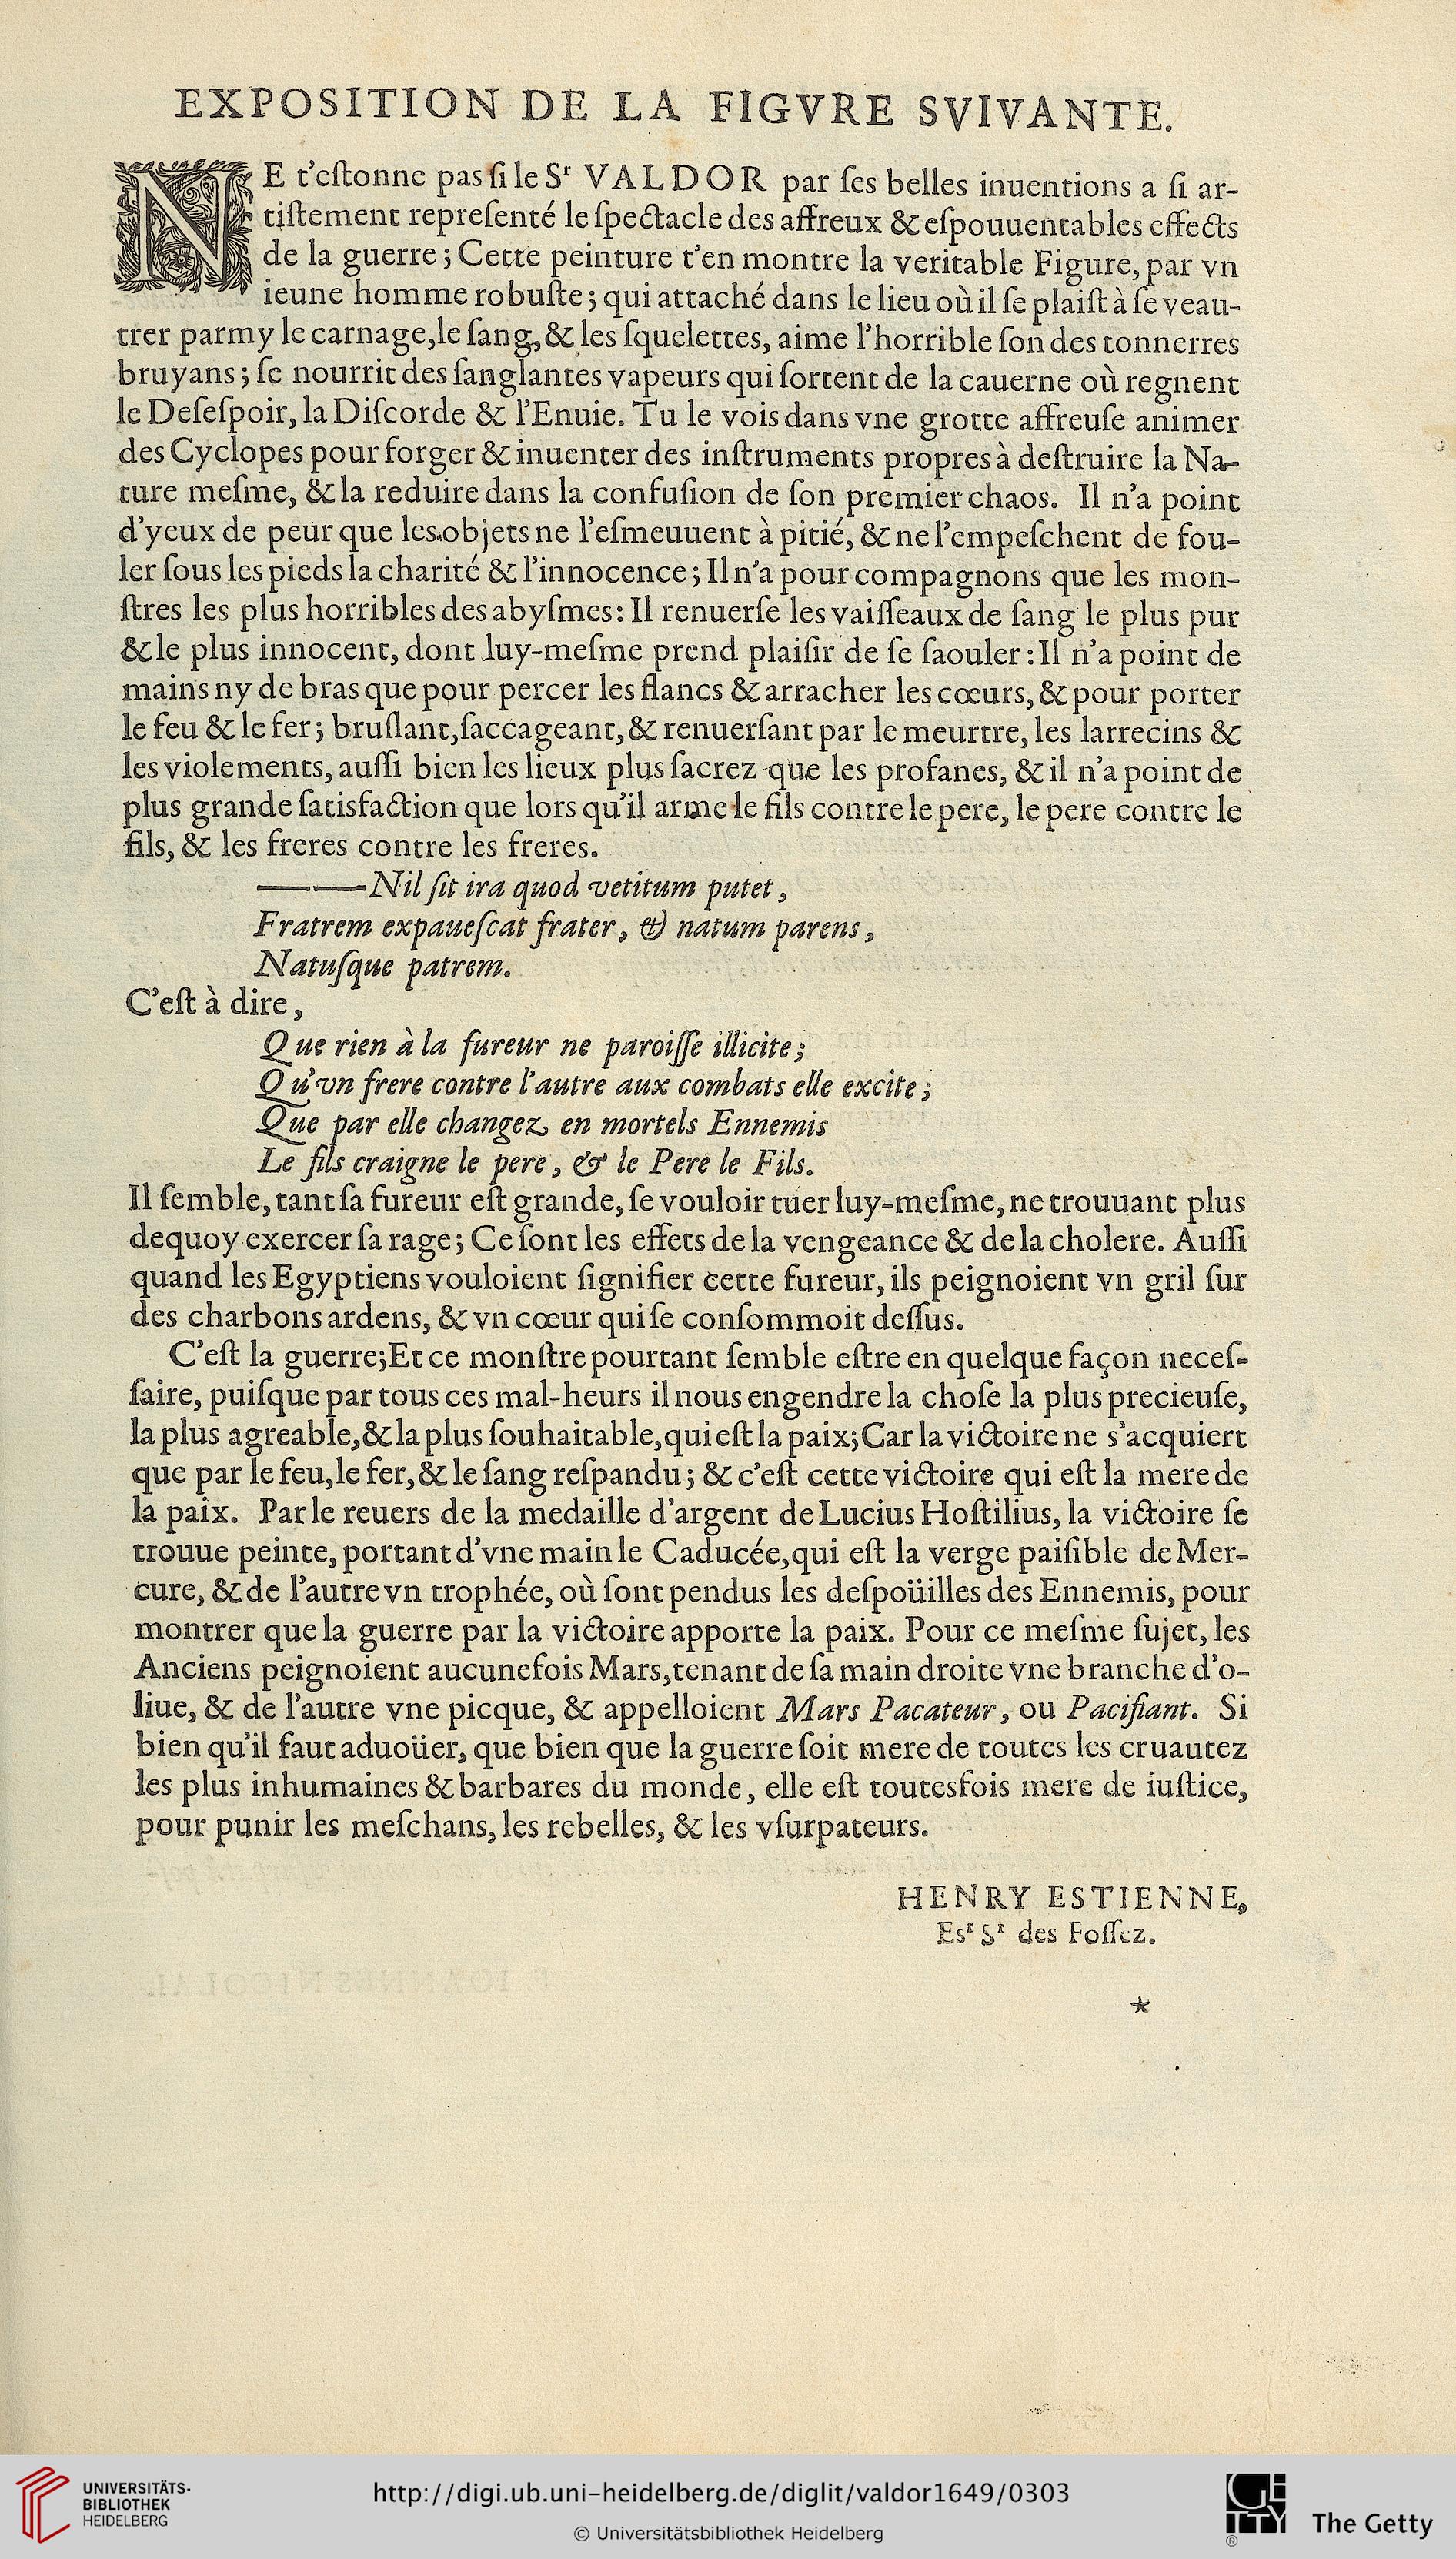 EXPOSITION DE LA FIGVRE SVIVANTE.
NE t'eſtonne pas ſi le Sʳ VALDOR par ſes belles inuentions a ſi ar-
tiſtement repreſenté le ſpectacle des affreux & eſpouuentables effects
de la guerre; Cette peinture t'en montre la veritable Figure, par vn
ieune homme robuſte; qui attaché dans le lieu où il ſe plaiſt à ſe veau-
trer parmy le carnage, le ſang, & les ſquelettes, aime l'horrible ſon des tonnerres
bruyans; ſe nourrit des ſanglantes vapeurs qui ſortent de la cauerne où regnent
le Deſeſpoir, la Diſcorde & l'Enuie. Tu le vois dans vne grotte affreuſe animer
des Cyclopes pour forger & inuenter des inſtruments propres à deſtruire la Na-
ture meſme, & la reduire dans la confuſion de ſon premier chaos. Il n'a point
d'yeux de peur que les objets ne l'eſmeuuent à pitié, & ne l'empeſchent de fou-
ler ſous les pieds la charité & l'innocence; Il n'a pour compagnons que les mon-
ſtres les plus horribles des abyſmes: Il renuerſe les vaiſſeaux de ſang le plus pur
& le plus innocent, dont luy-meſme prend plaiſir de ſe ſaouler: Il n'a point de
mains ny de bras que pour percer les flancs & arracher les cœurs, & pour porter
le feu & le fer; bruſlant, ſaccageant, & renuerſant par le meurtre, les larrecins &
les violements, auſſi bien les lieux plus ſacrez que les profanes, & il n'a point de
plus grande ſatisfaction que lors qu'il arme le fils contre le pere, le pere contre le
fils, & les freres contre les freres.
——Nil ſit ira quod vetitum putet,
Fratrem expaueſcat frater, & natum parens,
Natuſque patrem.
C'eſt à dire,
Que rien à la fureur ne paroiſſe illicite;
Qu'vn frere contre l'autre aux combats elle excite;
Que par elle changez en mortels Ennemis
Le fils craigne le pere, & le Pere le Fils.
Il ſemble, tant ſa fureur eſt grande, ſe vouloir tuer luy-meſme, ne trouuant plus
dequoy exercer ſa rage; Ce ſont les effets de la vengeance & de la cholere. Auſſi
quand les Egyptiens vouloient ſignifier cette fureur, ils peignoient vn gril ſur
des charbons ardens, & vn cœur qui ſe conſommoit deſſus.
C'eſt la guerre; Et ce monſtre pourtant ſemble eſtre en quelque façon neceſ-
ſaire, puiſque par tous ces mal-heurs il nous engendre la choſe la plus precieuſe,
la plus agreable, & la plus ſouhaitable, qui eſt la paix; Car la victoire ne s'acquiert
que par le feu, le fer, & le ſang reſpandu; & c'eſt cette victoire qui eſt la mere de
la paix. Par le reuers de la medaille d'argent de Lucius Hoſtilius, la victoire ſe
trouue peinte, portant d'vne main le Caducée, qui eſt la verge paiſible de Mer-
cure, & de l'autre vn trophée, où ſont pendus les deſpoüilles des Ennemis, pour
montrer que la guerre par la victoire apporte la paix. Pour ce meſme ſujet, les
Anciens peignoient aucunefois Mars, tenant de ſa main droite vne branche d'o-
liue, & de l'autre vne picque, & appelloient Mars Pacateur, ou Pacifiant. Si
bien qu'il faut aduoüer, que bien que la guerre ſoit mere de toutes les cruautez
les plus inhumaines & barbares du monde, elle eſt toutesfois mere de iuſtice,
pour punir les meſchans, les rebelles, & les vſurpateurs.
HENRY ESTIENNE,
Esʳ Sʳ des Foſſez.
*
UNIVERSITÄTS-
BIBLIOTHEK
HEIDELBERG
http://digi.ub.uni-heidelberg.de/diglit/valdor1649/0303
© Universitätsbibliothek Heidelberg
GETTY
®
The Getty